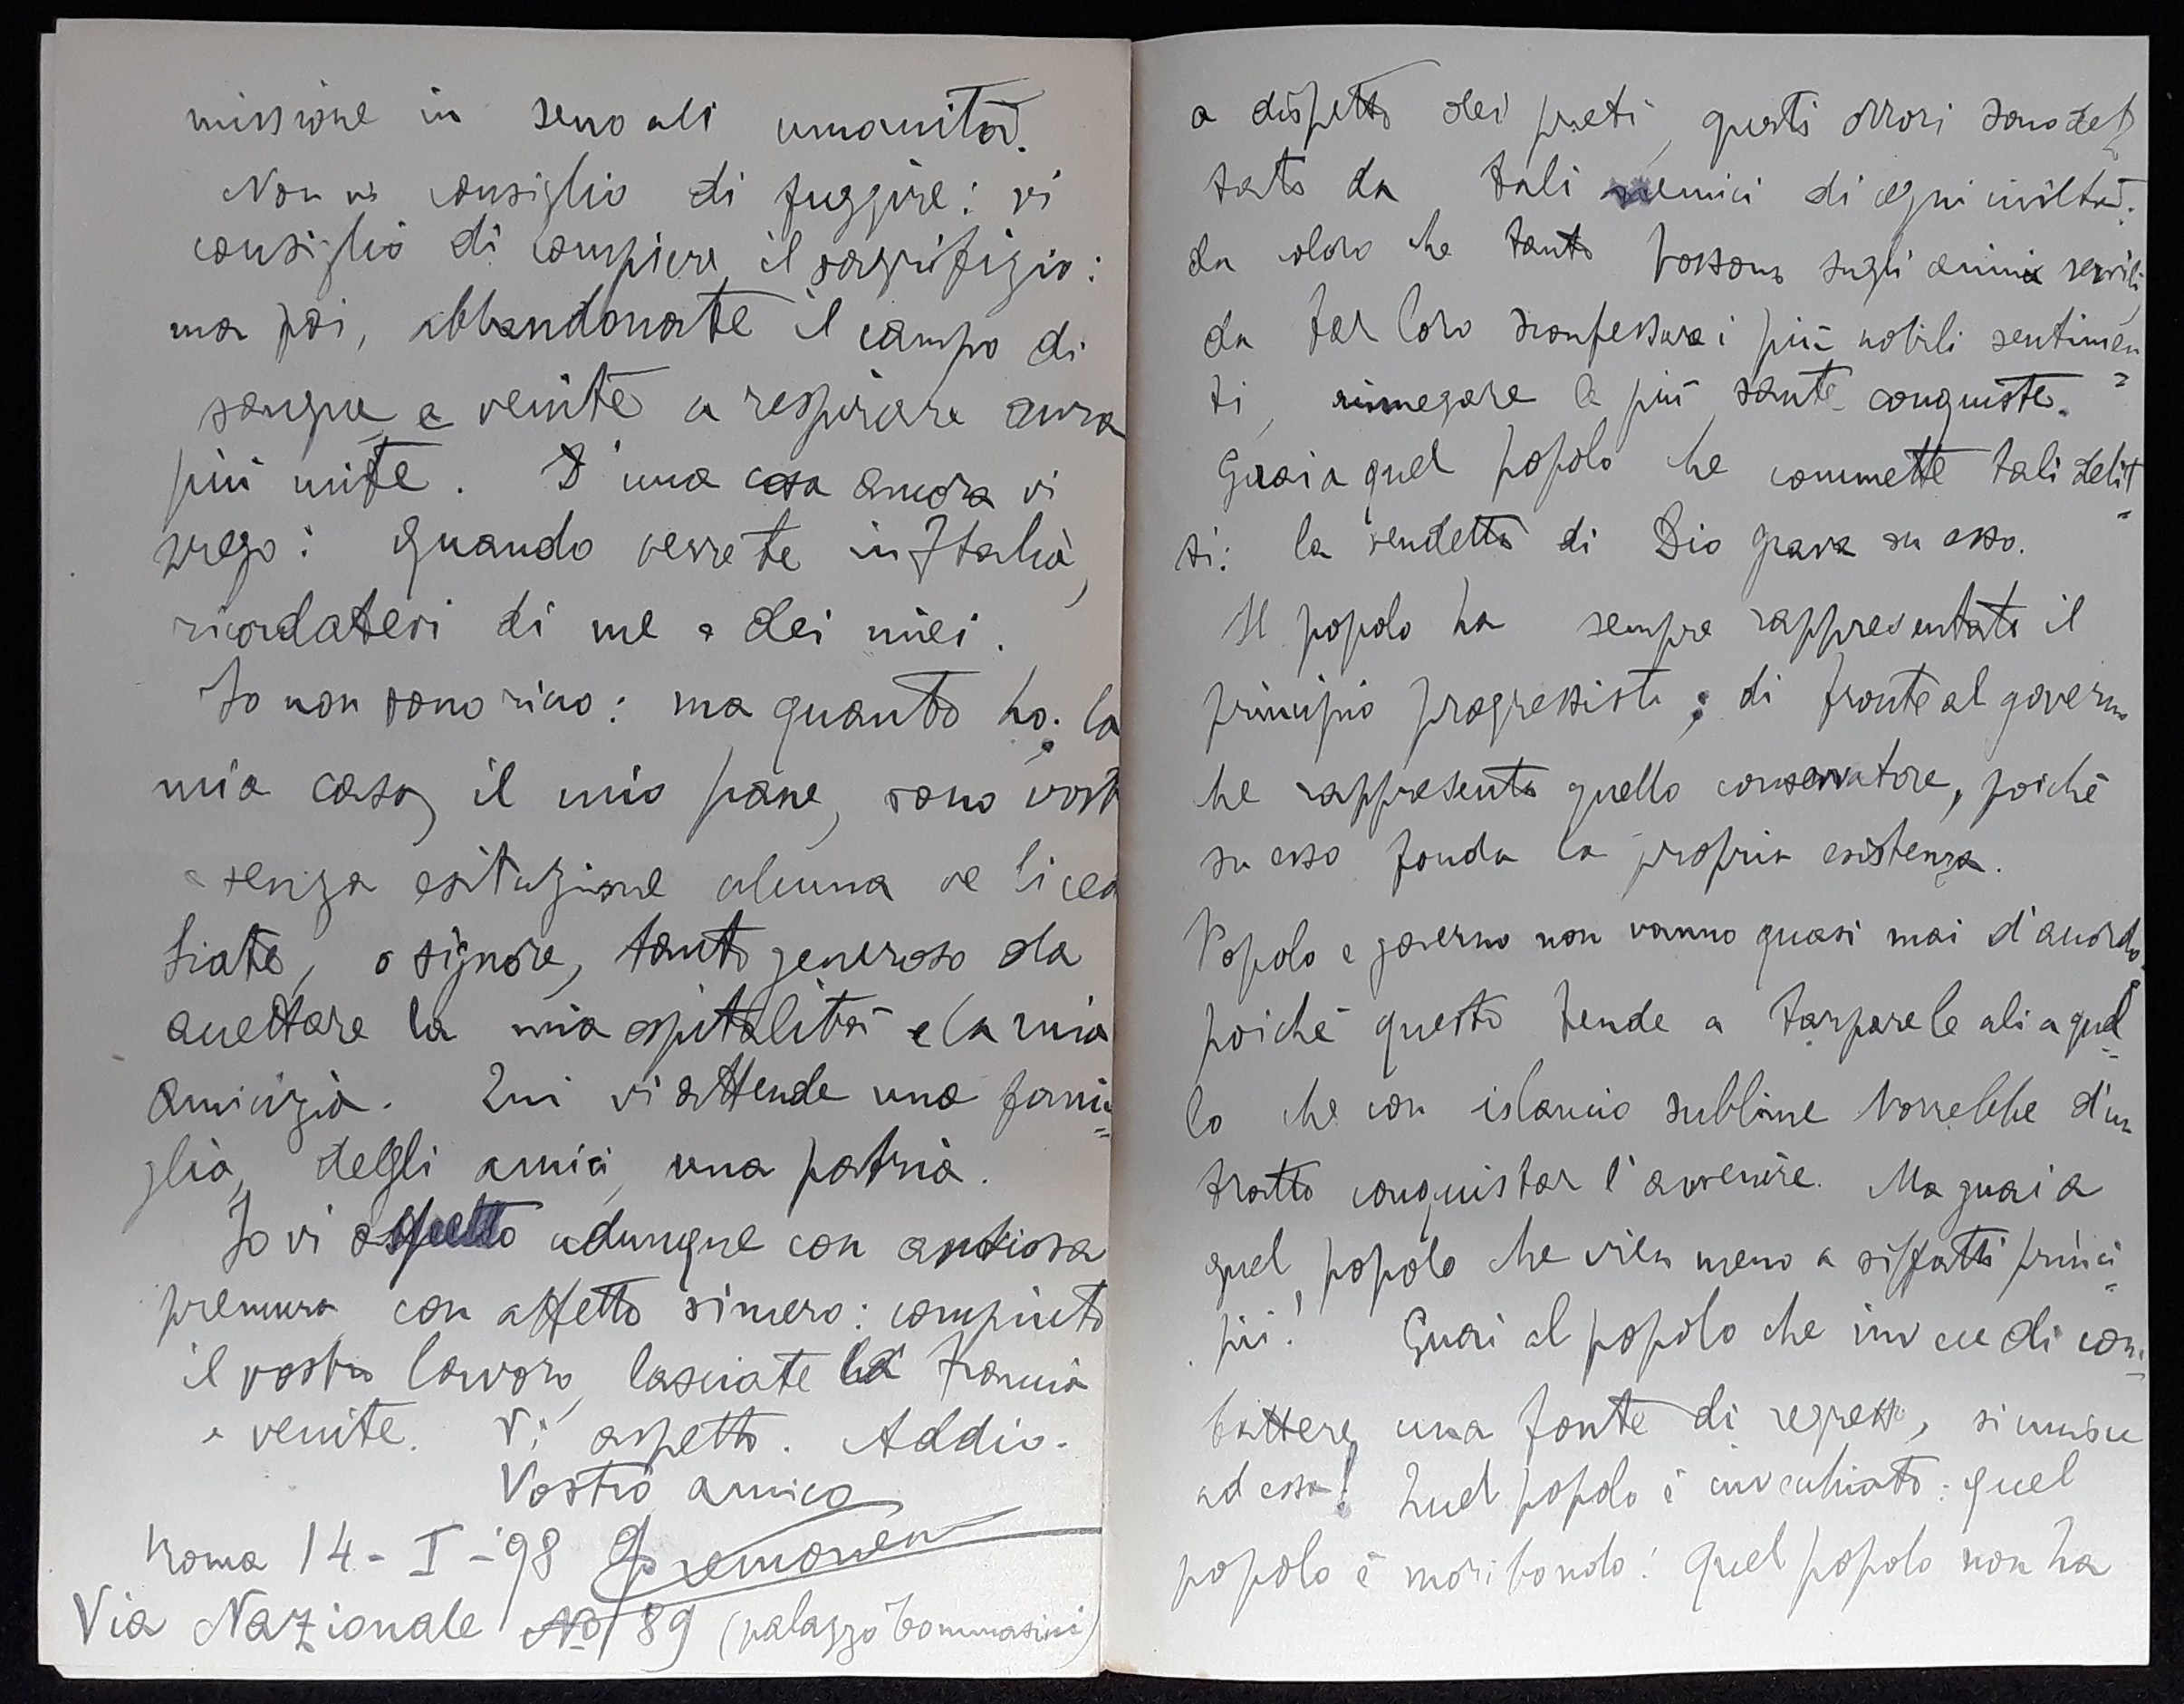 missione in seno all' umanità.
Non vi consiglio di fuggire: vi
consiglio di compiere il sagrifizio:
ma poi, abbandonate il campo di
sangue e venite a respirare aura
più mite. D'una cosa ancora vi
prego: quando verrete in Italia,
ricordatevi di me e dei miei.
Io non sono ricco: ma quanto ho: la
mia casa, il mio pane, sono vost
senza esitazione alcuna
siate, o signore, tanto generoso da
accettare la mia ospitalità e la mia
amicizia. Qui vi attende una fami=
glia, degli amici, una patria.
Io vi aspetto adunque con ansiosa
premura con affetto sincero: compiuto
il vostro lavoro, lasciate la Francia
e venite. Vi aspetto. Addio.
Vostro amico
Roma 14-I-'98
Via Nazionale No 89 (palazzo Tommasini)
a dispetto dei preti, questi orrori sono det=
tati da tali nemici di ogni civiltà:
da coloro che tanto possono sugli animi servili,
da far loro sconfessare i più nobili sentimen=
ti, rinnegare le più sante conquiste.
Guai a quel popolo che commette tali delit=
ti: la vendetta di Dio grava su esso.
Il popolo ha sempre rappresentato il
principio progressista; di fronte al governo
che rappresenta quello conservatore, poichè
su esso fonda la propria esistenza.
Popolo e governo non vanno quasi mai d'accordo,
poichè questo tende a tarpare le ali a quel=
lo che con islancio sublime vorrebbe d'un
tratto conquistar l'avvenire. Ma guai a
quel popolo che vien meno a siffatti princi=
pii! Guai al popolo che invece di com=
battere una fonte di regresso, si unisce
ad essa! Quel popolo è invecchiato: quel
popolo è moribondo! Quel popolo non ha